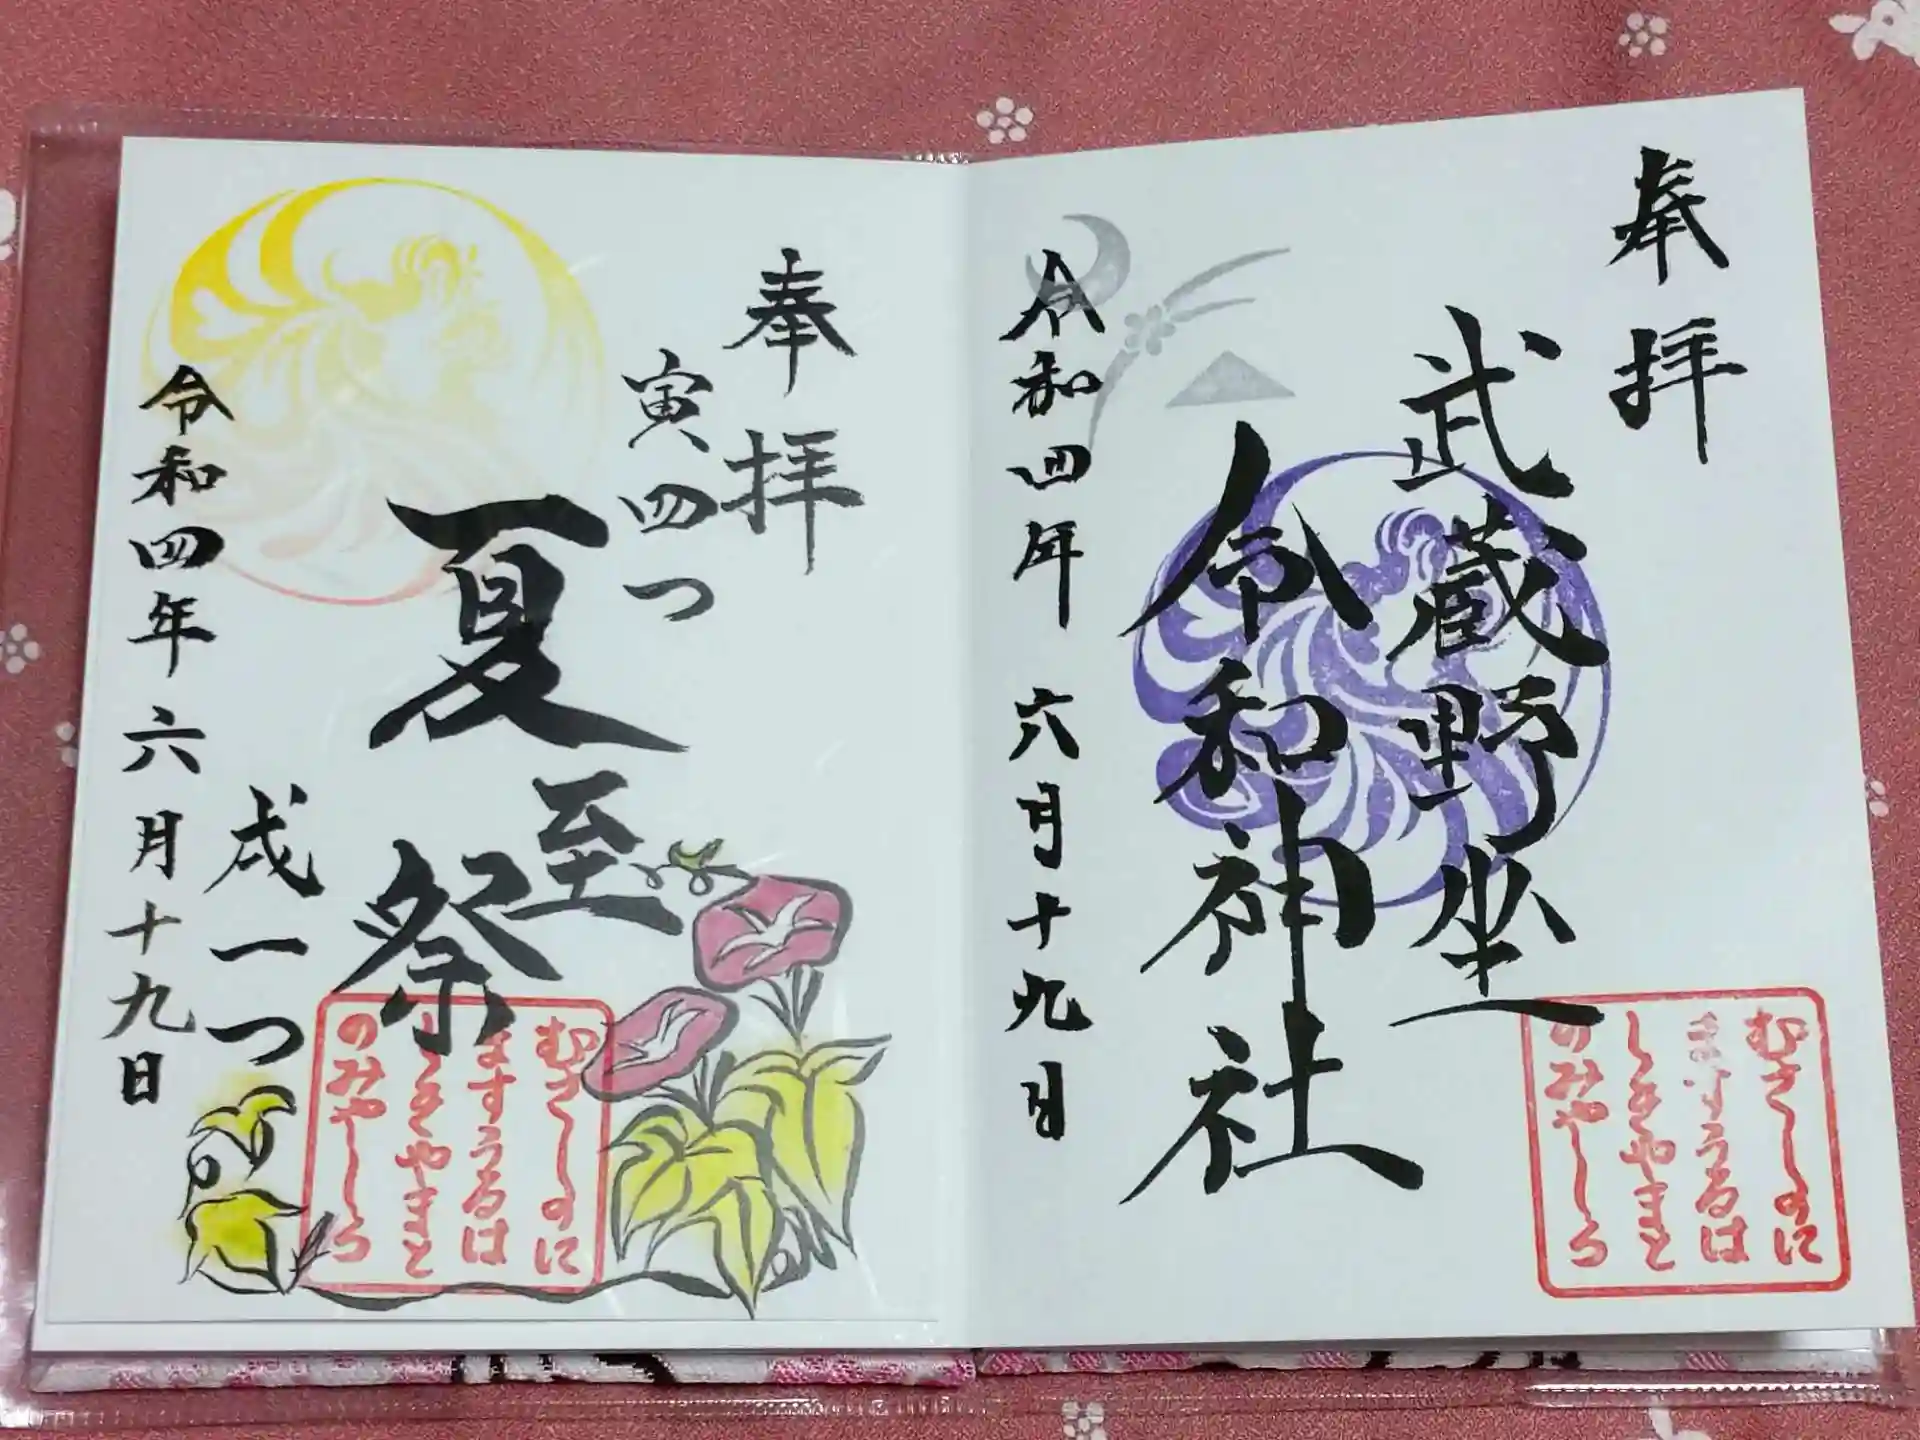 奉拝
武蔵野坐
令和神社
令和四年 六月十九日
むさしのに
ますうるは
しきやまと
のみやしろ
奉拝
寅四つ
夏至祭
戌一つ
令和四年六月十九日
むさしのに
ますうるは
しきやまと
のみやしろ